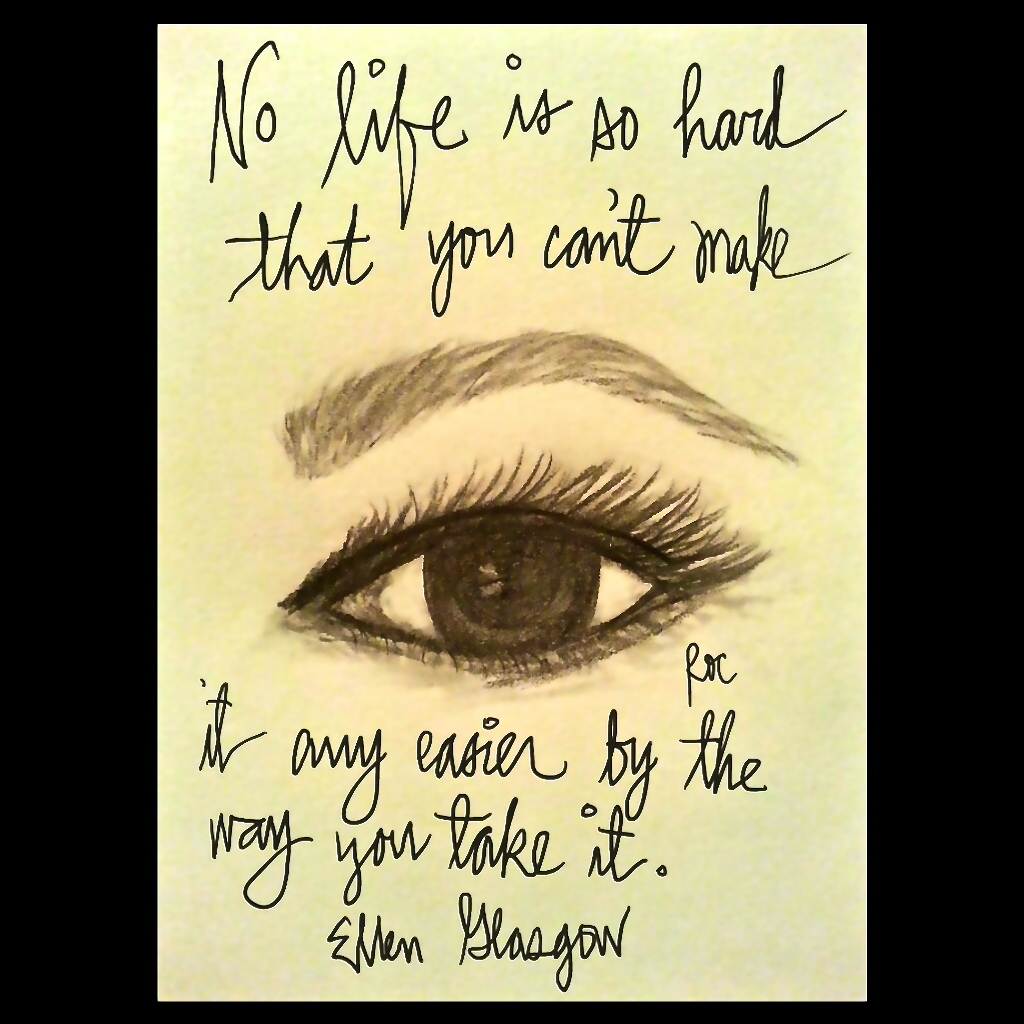 No life is so hard
that you can't make
Roc
it any easier by the
way you take it.
Ellen Glasgow